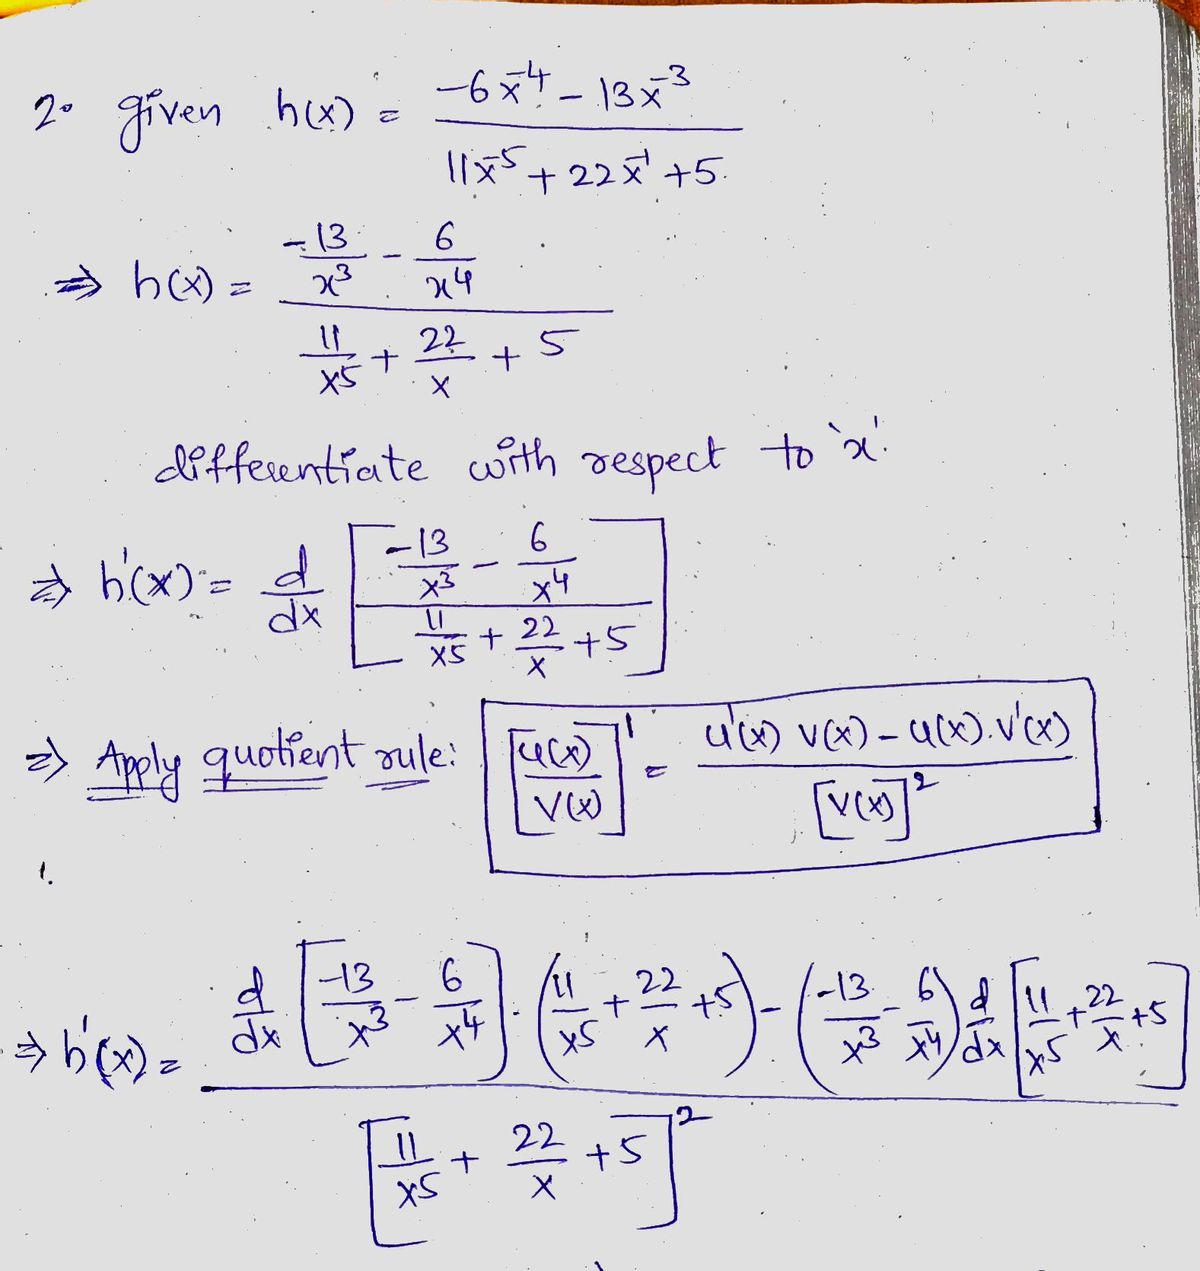 2. given h(x) = (-6x⁻⁴ - 13x⁻³) / (11x⁻⁵ + 22x⁻¹ + 5)
⇒ h(x) = (-13/x³ - 6/x⁴) / (11/x⁵ + 22/x + 5)
differentiate with respect to 'x'.
⇒ h'(x) = d/dx [(-13/x³ - 6/x⁴) / (11/x⁵ + 22/x + 5)]
⇒ Apply quotient rule: [u(x)/v(x)]' = (u'(x) v(x) - u(x).v'(x)) / [v(x)]²
1.
⇒ h'(x) = (d/dx [-13/x³ - 6/x⁴] . (11/x⁵ + 22/x + 5) - (-13/x³ - 6/x⁴) d/dx [11/x⁵ + 22/x + 5]) / [11/x⁵ + 22/x + 5]²